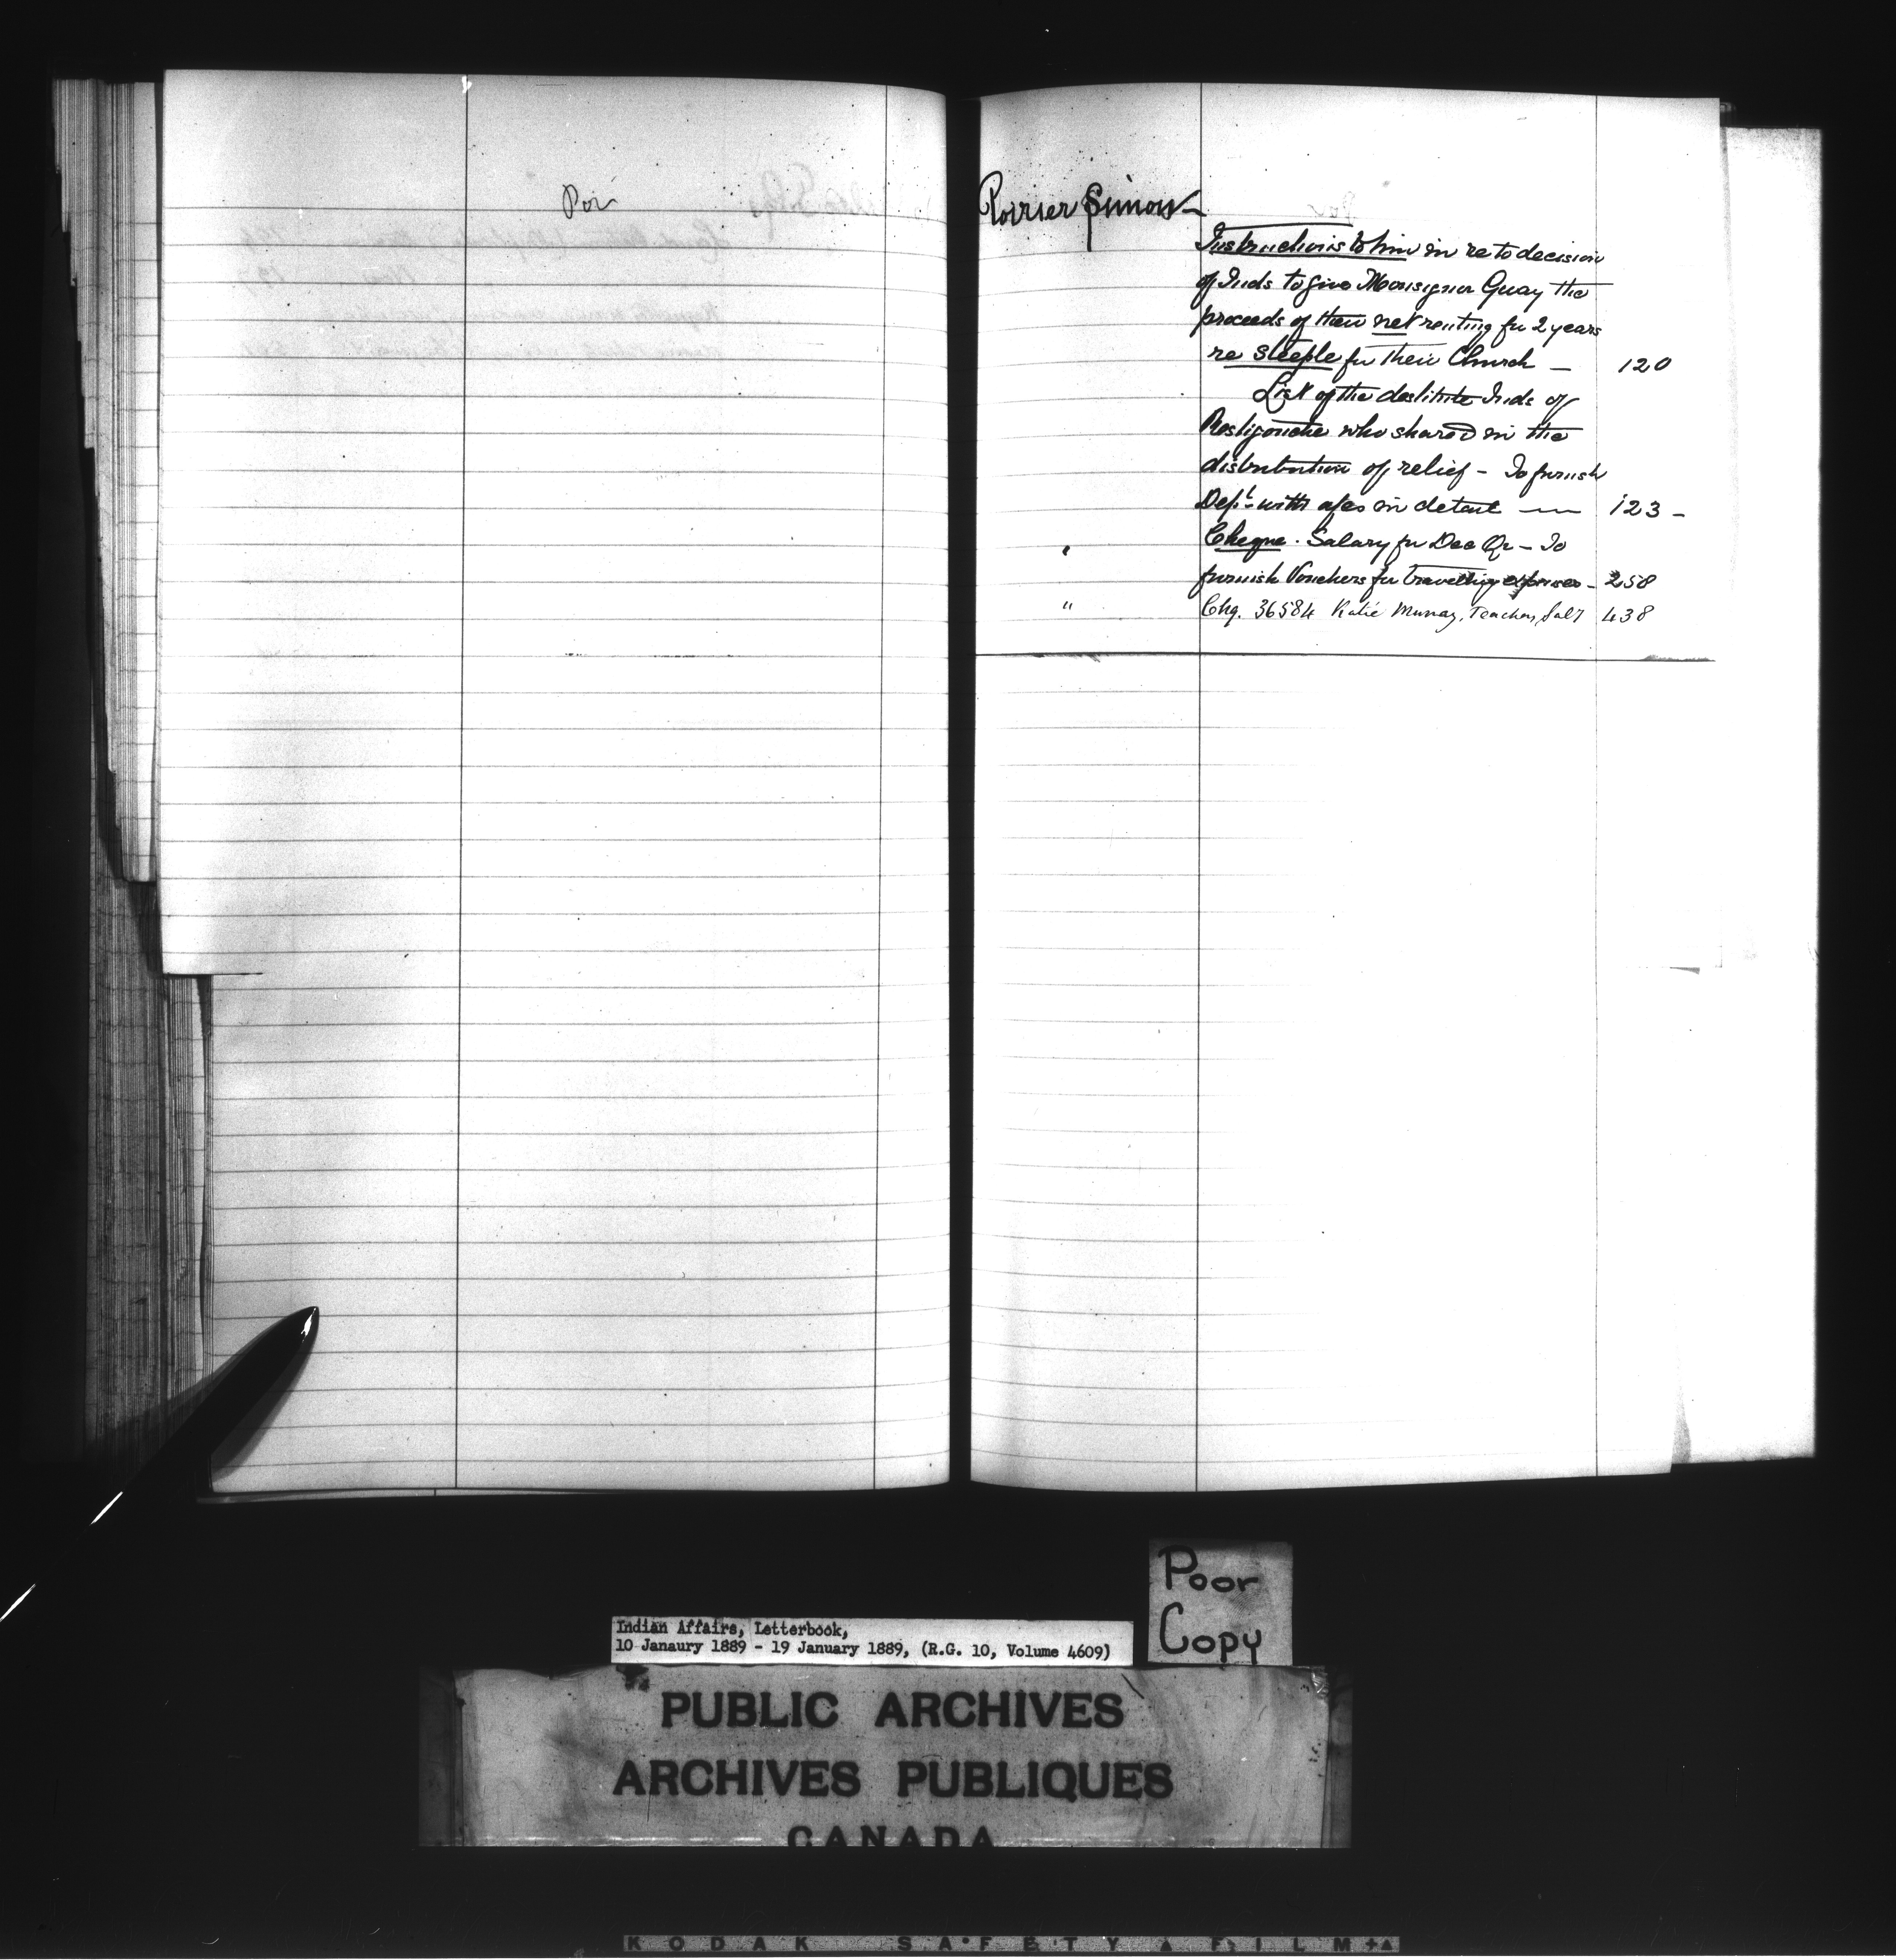 Poi
Poirier Simon —
Instructions to him in re to decision
of Inds to give Monsignor Guay the
proceeds of their net renting for 2 years
re steeple for their Church — 120
List of the destitute Inds of
Restigouche who shared in the
distribution of relief - To furnish
Dept. with a/cs in detail — 123 -
" Cheque . Salary for Dec Qr - To
furnish Vouchers for travelling expenses - 258
" Chq. 36584 Katie Murray, Teacher, Saly 438
Poor
Copy
Indian Affairs, Letterbook,
10 Janaury 1889 - 19 January 1889, (R.G. 10, Volume 4609)
PUBLIC ARCHIVES
ARCHIVES PUBLIQUES
CANADA
KODAK SAFETY FILM